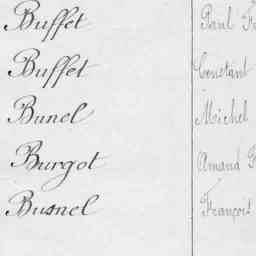 Buffet Paul
Buffet Constant
Bunel Michel
Burgot Amand
Busnel François